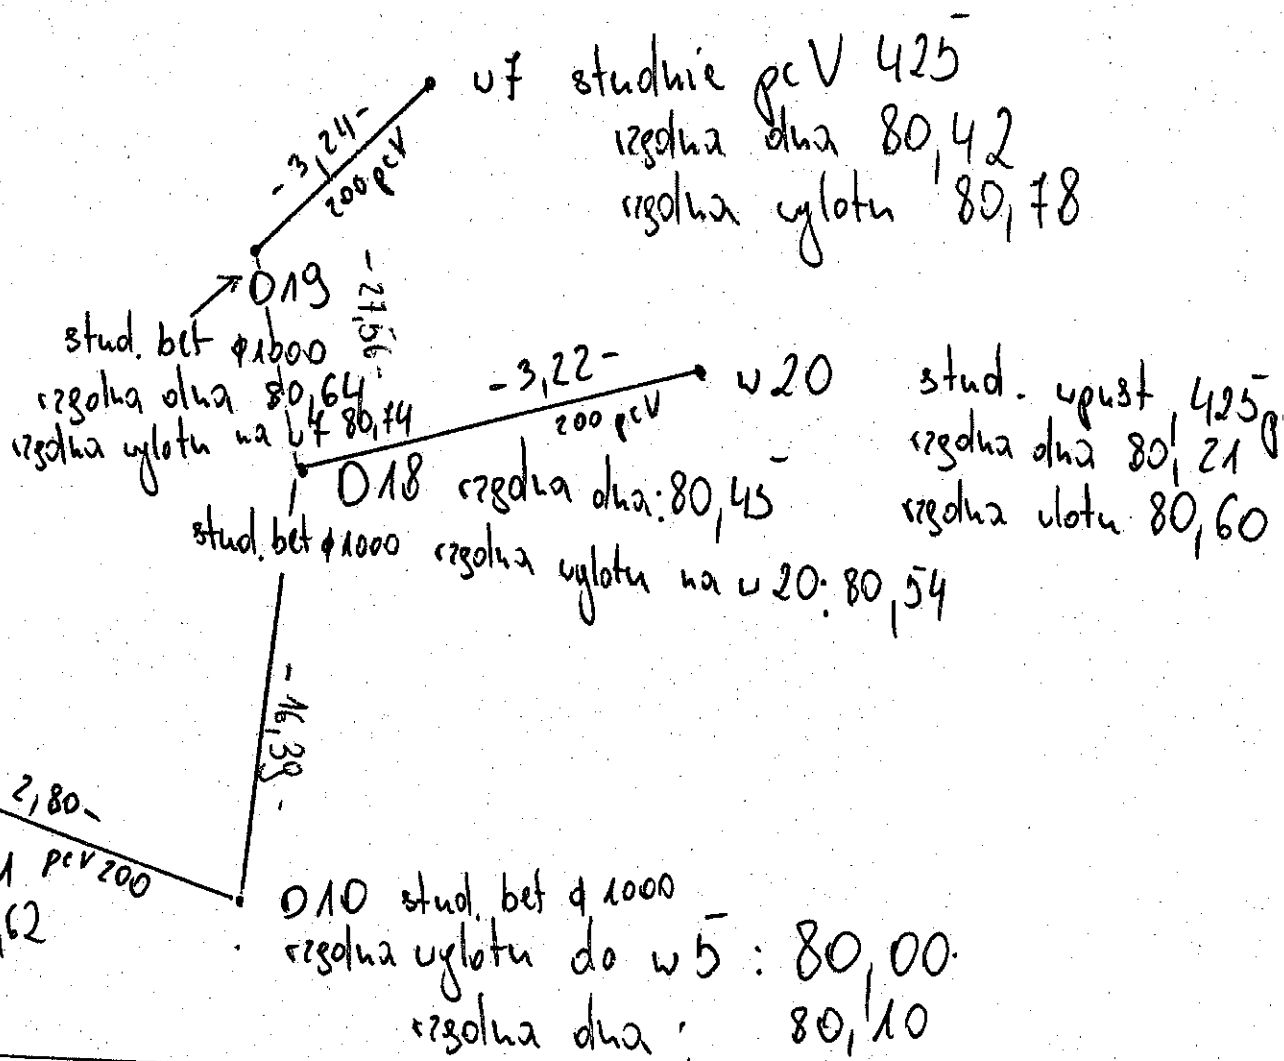 w7 studnie pcV 425
rzędna dna 80,42
rzędna wylotu 80,78
- 3,24 -
200 pcV
D19
- 27,56 -
stud. bet ϕ1000
rzędna dna 80,64
rzędna wylotu na w7 80,74
- 3,22 -
200 pcV
w20 stud. wpust 425 p
rzędna dna 80,21
rzędna wlotu 80,60
D18 rzędna dna: 80,45
stud. bet ϕ1000 rzędna wylotu na w20: 80,54
- 16,39 -
2,80 -
pcv 200
1
,62
D10 stud. bet ϕ 1000
rzędna wylotu do w5 : 80,00
rzędna dna : 80,10